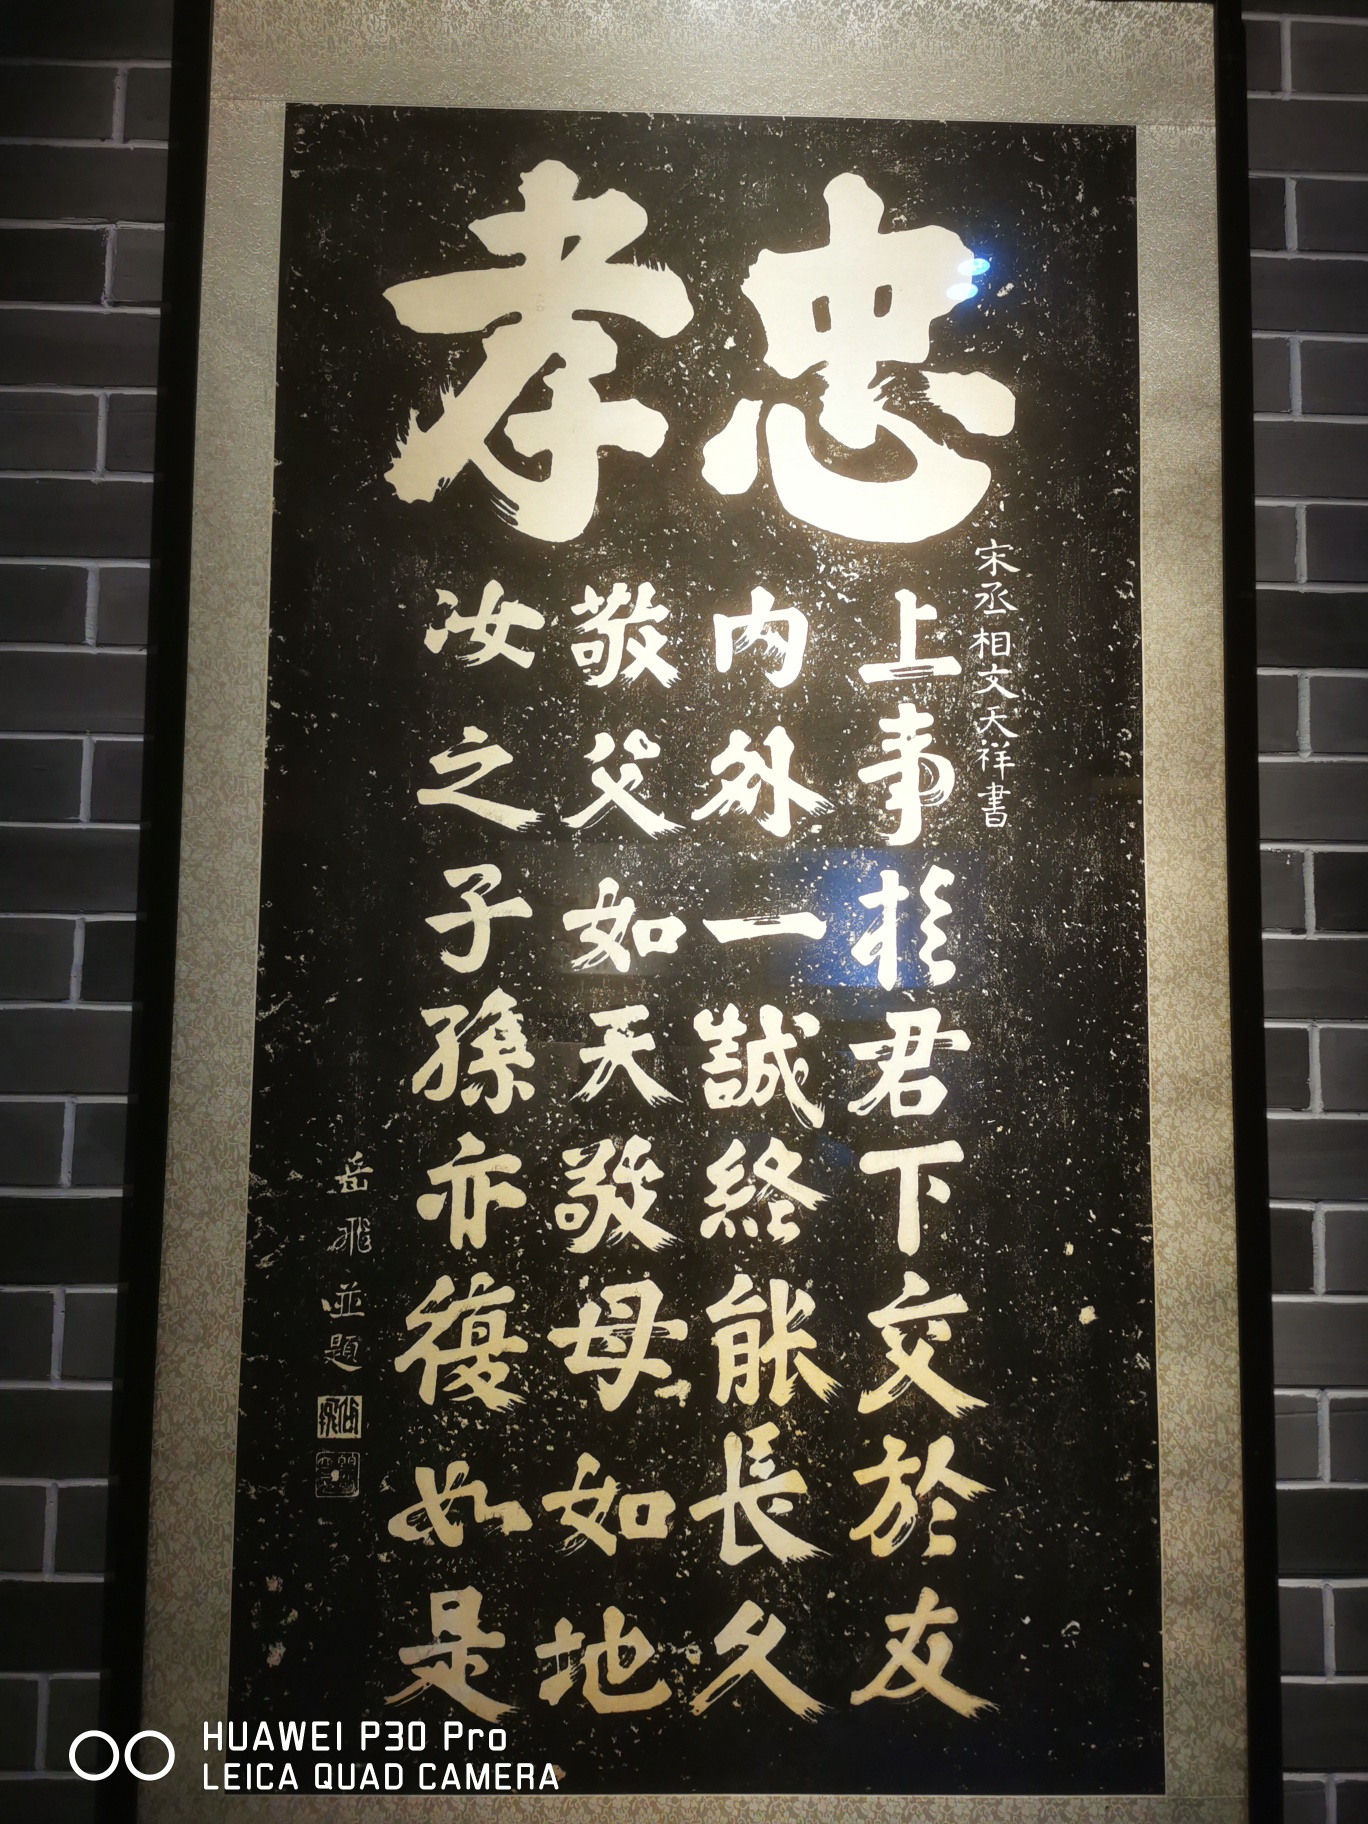 忠孝
宋丞相文天祥書
上事於君下交於友
內外一誠終能長久
敬父如天敬母如地
汝之子孫亦復如是
岳飛並題
HUAWEI P30 Pro
LEICA QUAD CAMERA